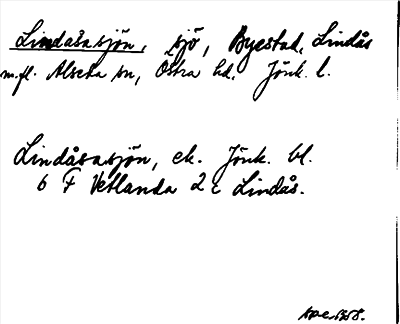 Lindåsasjön, sjö, Byestad, Lindås
m.fl. Alseda sn, Östra hd, Jönk. l.
Lindåsasjön, ek. Jönk. bl.
6 F Vetlanda 2 c Lindås.